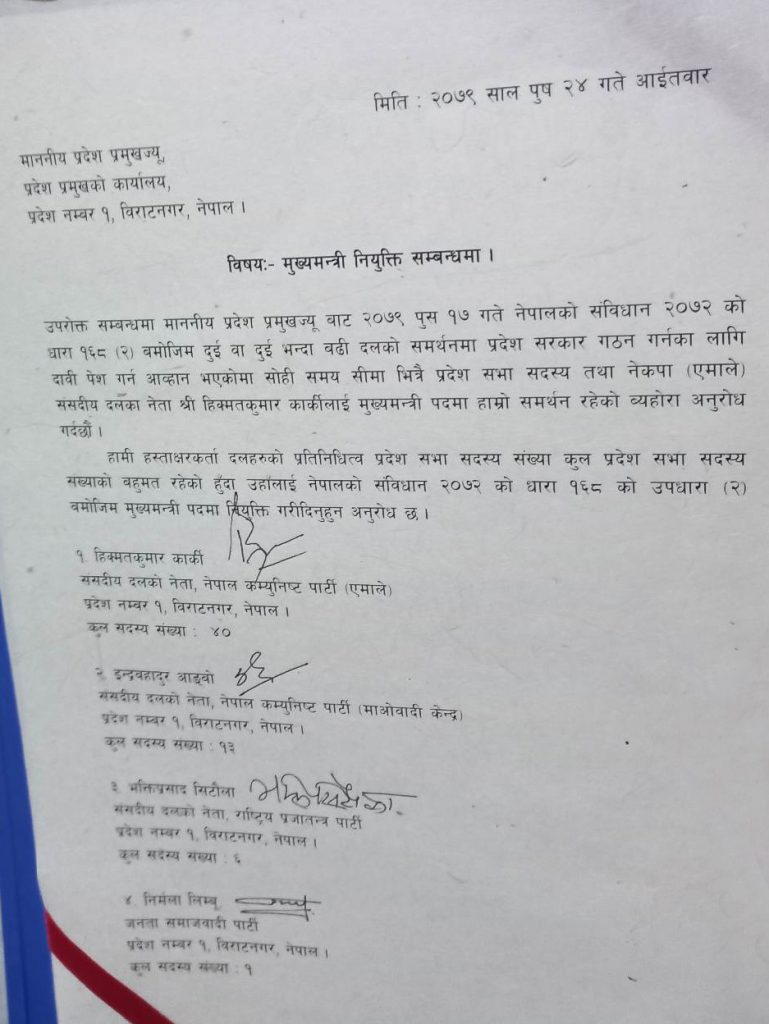 मिति : २०७९ साल पुष २४ गते आईतवार
माननीय प्रदेश प्रमुखज्यू,
प्रदेश प्रमुखको कार्यालय,
प्रदेश नम्बर १, विराटनगर, नेपाल ।
विषय:- मुख्यमन्त्री नियुक्ति सम्बन्धमा ।
उपरोक्त सम्बन्धमा माननीय प्रदेश प्रमुखज्यू बाट २०७९ पुस १७ गते नेपालको संविधान २०७२ को
धारा १६८ (२) बमोजिम दुई वा दुई भन्दा वढी दलको समर्थनमा प्रदेश सरकार गठन गर्नका लागि
दावी पेश गर्न आव्हान भएकोमा सोही समय सीमा भित्रै प्रदेश सभा सदस्य तथा नेकपा (एमाले)
संसदीय दलका नेता श्री हिक्मतकुमार कार्कीलाई मुख्यमन्त्री पदमा हाम्रो समर्थन रहेको ब्यहोरा अनुरोध
गर्दछौं ।
हामी हस्ताक्षरकर्ता दलहरुको प्रतिनिधित्व प्रदेश सभा सदस्य संख्या कुल प्रदेश सभा सदस्य
संख्याको वहुमत रहेको हुँदा उहाँलाई नेपालको संविधान २०७२ को धारा १६८ को उपधारा (२)
बमोजिम मुख्यमन्त्री पदमा नियुक्ति गरीदिनुहुन अनुरोध छ ।
१. हिक्मतकुमार कार्की
संसदीय दलको नेता, नेपाल कम्युनिष्ट पार्टी (एमाले)
प्रदेश नम्बर १, विराटनगर, नेपाल ।
कुल सदस्य संख्या : ४०
२. इन्द्रवहादुर आङ्वो
संसदीय दलको नेता, नेपाल कम्युनिष्ट पार्टी (माओवादी केन्द्र)
प्रदेश नम्बर १, विराटनगर, नेपाल ।
कुल सदस्य संख्या : १३
३. भक्तिप्रसाद सिटौला
संसदीय दलको नेता, राष्ट्रिय प्रजातन्त्र पार्टी
प्रदेश नम्बर १, विराटनगर, नेपाल ।
कुल सदस्य संख्या : ६
४. निर्मला लिम्बू
जनता समाजवादी पार्टी
प्रदेश नम्बर १, विराटनगर, नेपाल ।
कुल सदस्य संख्या : १